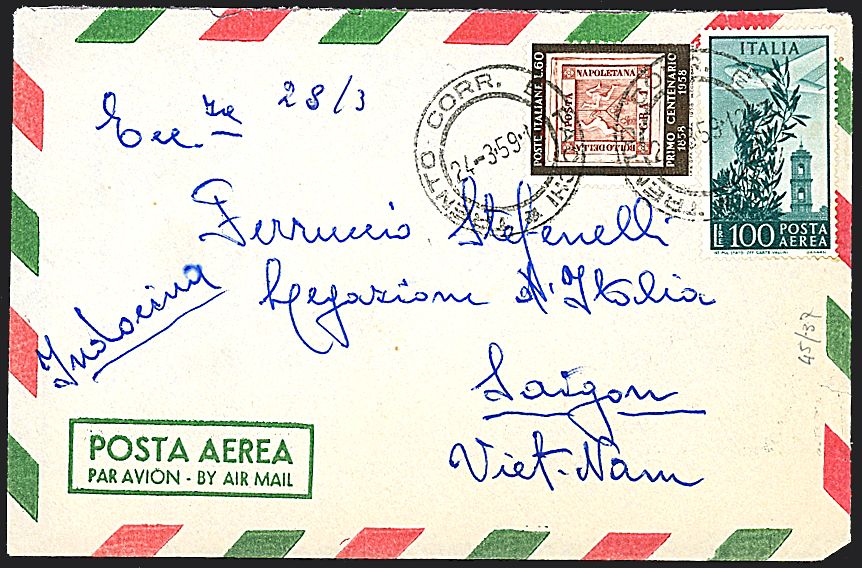 Ecc.za 28/3
Ferruccio Stefenelli
Legazione d'Italia
Indocina
Saigon
Viet-Nam
POSTA AEREA
PAR AVION - BY AIR MAIL
TRENTO CORR. 
24-3-59
POSTE ITALIANE L.60
PRIMO CENTENARIO
1858 1958
POSTA NAPOLETANA
BOLLO DELLA
GR.
ITALIA
LIRE 100 POSTA
AEREA
45/37